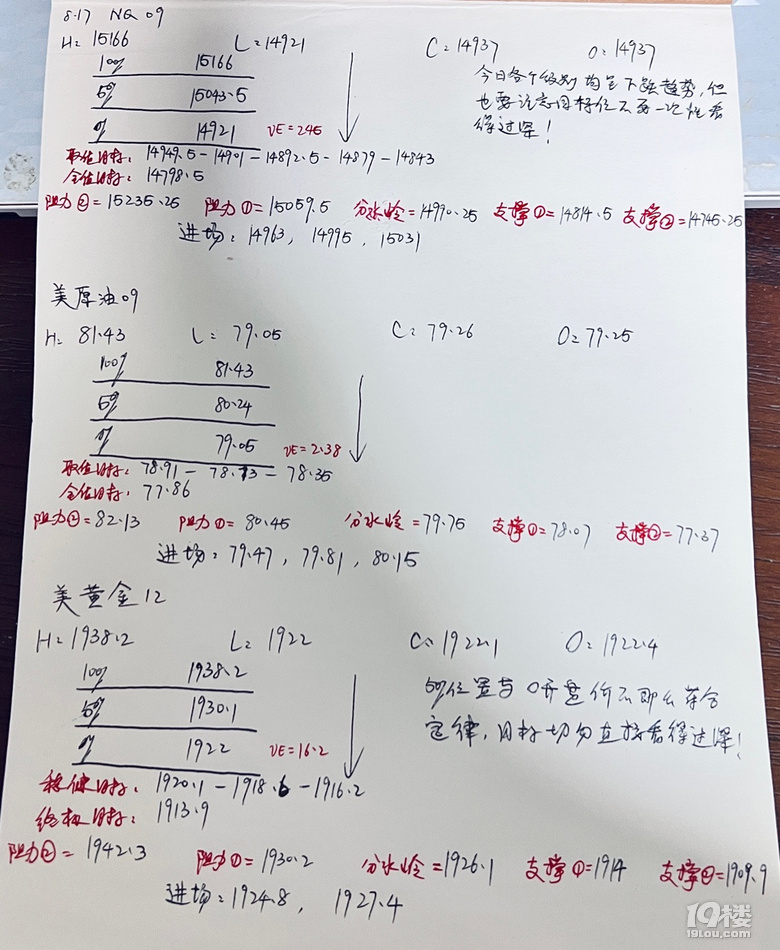 8.17 NQ 09
H=15166 L=14921 C=14937 O=14937
100% 15166
今日各个级别均呈下跌趋势,但
5% 15043.5
也要注意目标位不要一次性看
0% 14921 VE=245
得过深!
取值目标: 14949.5-14901-14892.5-14879-14843
全值目标: 14798.5
阻力②=15235.25 阻力①=15059.5 分水岭=14990.25 支撑①=14814.5 支撑②=14745.25
进场: 14963, 14995, 15031
美原油09
H=81.43 L=79.05 C=79.26 O=79.25
100% 81.43
5% 80.24
0% 79.05 VE=2.38
取值目标: 78.91-78.73-78.35
全值目标: 77.86
阻力②=82.13 阻力①=80.45 分水岭=79.75 支撑①=78.07 支撑②=77.37
进场: 79.47, 79.81, 80.15
美黄金12
H=1938.2 L=1922 C=1922.1 O=1922.4
100% 1938.2
50%位置与O开盘价不那么符合
50% 1930.1
定律,目标切勿直接看得过深!
0% 1922 VE=16.2
稳健目标: 1920.1-1918.6-1916.2
终极目标: 1913.9
阻力②=1942.3 阻力①=1930.2 分水岭=1926.1 支撑①=1914 支撑②=1909.9
进场: 1924.8, 1927.4
19楼
19lou.com